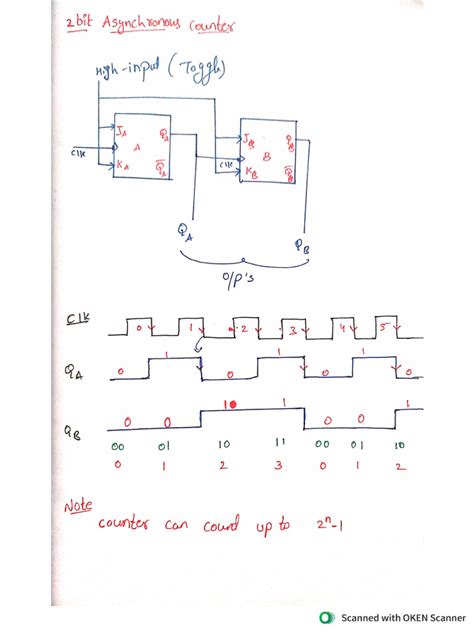 2 bit Asynchronous Counter
High-input (Toggle)
J_A Q_A
A
CLK
K_A Q̅_A
J_B Q_B
B
CLK
K_B Q̅_B
Q_A Q_B
O/P's
CLK 0 1 2 3 4 5
Q_A 0 1 0 1 0 1 0
Q_B 0 0 1 1 0 0 1
00 01 10 11 00 01 10
0 1 2 3 0 1 2
Note
counter can count up to 2ⁿ-1
Scanned with OKEN Scanner